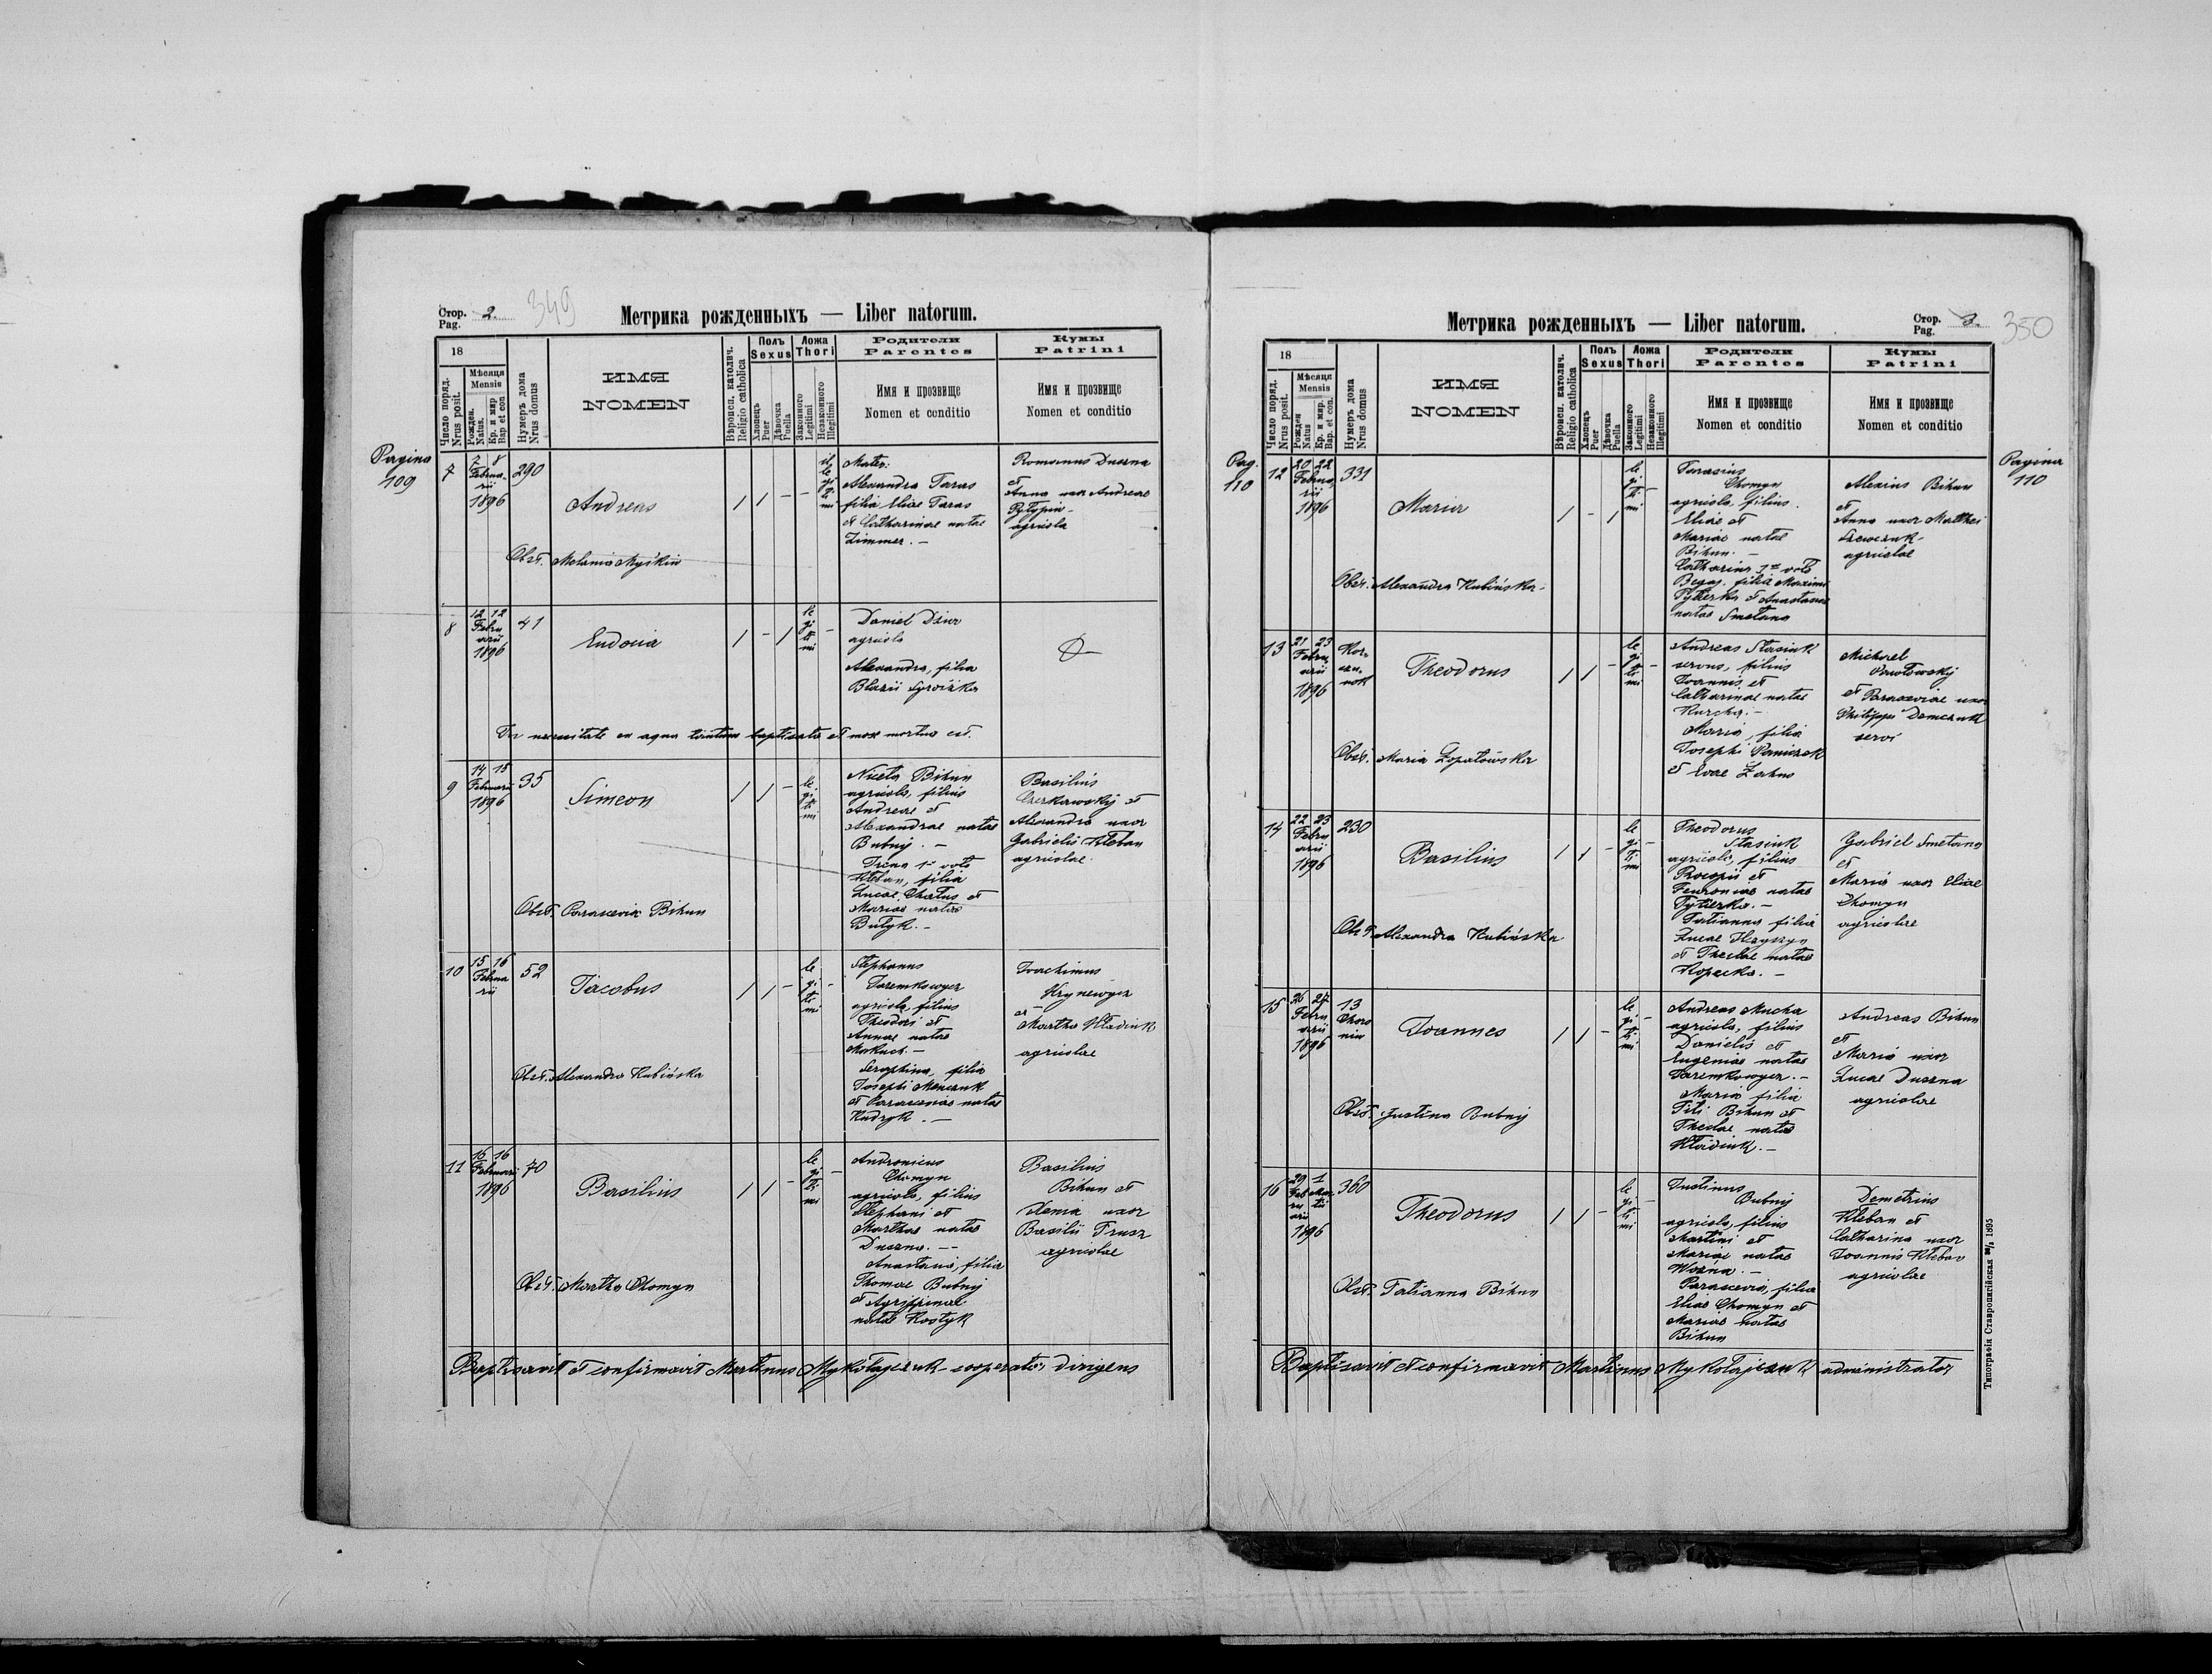 Стор. Pag. 2. 349
Метрика рожденныхъ — Liber natorum.
18
Число поряд. Nrus posit.
Мѣсяця Mensis
Рожден. Natus.
Кр. и мѵр Bap et con
Нумеръ дома Nrus domus
ИМЯ
NOMEN
Вѣроисп. католич. Religio catholica
Полъ Sexus
Хлопецъ Puer
Дѣвочка Puella
Ложа Thori
Законного Legitimi
Незаконного Illegitimi
Родители
Parentes
Имя и прозвище
Nomen et conditio
Кумы
Patrini
Имя и прозвище
Nomen et conditio
Pagina
109
7
2 8
Februa-
rii
1896
290
Andreas
/ / - -
il
le
gi
ti
mi
Mater:
Alexandra Taras
filia Eliae Taras
et Catharinae natae
Zimmer. —
Romanus Duszna
et
Anna uxor Andreae
agricola
Obst. Melania Myśkiw
8
12 12
Febru
arii
1896
41
Eudocia
/ - /
le
gi
ti
mi
-
Daniel Dziur
agricola
Alexandra, filia
Blasii Syroiżka
In necessitate ex aqua tantum baptisata et mox mortua est.
9
14 15
Februarii
1896
35
Simeon
/ / -
le
gi
ti
mi
Niceta Bihun
agricola, filius
Andreae et
Alexandrae natae
Bubnij. —
Irena 1o voto
Kleban, filia
Lucae Chatus et
Mariae natae
Butyk. —
Basilius
Czerkawskij et
Alexandra uxor
Gabrielis Kleban
agricolae.
Obst. Parascevia Bihun
10
15 16
Februa
rii
52
Jacobus
/ / -
le
gi
ti
mi
-
Stephanus
Jaremkowycz
agricola, filius
Theodori et
Annae natae
Makuch. —
Seraphina, filia
Josephi Menczuk
et Parasceviae natae
Kudryk. —
Joachimus
Hrynewycz
et —
Martha Kładiuk
agricolae
Obst. Alexandra Kubińska
11
16 16
Februarii
1896
70
Basilius
/ / -
le
gi
ti
mi
-
Andronicus
Chomyn
agricola, filius
Stephani et
Marthae natae
Duszna. —
Anastasia, filia
Thomae Bubnij
et Agrippinae
natae Kostyk
Basilius
Bihun et
Xenia uxor
Basilii Trusz
agricolae
Obst. Martha Chomyn
Baptisavit et confirmavit Martinus Mykołajczuk - cooperator dirigens
Метрика рожденныхъ — Liber natorum.
Стор. Pag. 3. 350
18
Число поряд. Nrus posit.
Мѣсяця Mensis
Рожден Natus
Кр. и мир. Bap. et con.
Нумеръ дома Nrus domus
ИМЯ
NOMEN
Вѣроисп. католич. Religio catholica
Полъ Sexus
Хлопецъ Puer
Дѣвочка Puella
Ложа Thori
Законного Legitimi
Незаконного Illegitimi
Родители
Parentes
Имя и прозвище
Nomen et conditio
Кумы
Patrini
Имя и прозвище
Nomen et conditio
Pag.
110
Pagina
110
12
20 22
Februa
rii
1896
331
Maria
/ - /
le
gi
ti
mi
-
Tarasius
Chomyn
agricola, filius
Eliae et
Mariae natae
Bihun. —
Catharina 1o voto
Begaj, filia Maximi
Pyterka et Anastasiae
natae Smetana
Alexius Bihun
et
Anna uxor Matthei
Szewczuk-
agricolae
Obst. Alexandra Kubińska-
13
21 23
Febru
arii
1896
Theodorus
/ / -
le
gi
ti
mi
-
Andreas Stasiuk
servus, filius
Joannis et
Catharinae natae
Kurcha. —
Maria, filia
Josephi Paniczek
et Evae Łahno
Michael
Pawłowskij
et Parasceviae uxor
Philippi Demczuk
servi
Obst. Maria Łopatówska
14
22 23
Febru
arii
1896
230
Basilius
/ / -
le
gi
ti
mi
-
Theodorus
Stasiuk
agricola, filius
Procopii et
Feuroniae natae
Pyterka. —
Tatianna filia
Lucae Hryszyn
et Theclae natae
Kopacka. —
Gabriel Smetana
et
Maria uxor Eliae
Chomyn
agricolae
Obst. Alexandra Kubińska
15
26 27
Febru
arii
1896
13
Joannes
/ / -
le
gi
ti
mi
-
Andreas Mucha
agricola, filius
Danielis et
Eugeniae natae
Jaremkowycz. —
Maria filia
Titi Bihun et
Theclae natae
Kładiuk. —
Andreas Bihun
et
Maria uxor
Lucae Duszna
agricolae
Obst. Justina Bubnij
16
29 1
Feb Mar
ru tii
arii
1896
360
Theodorus
/ / -
le
gi
ti
mi
-
Justinus
Bubnij
agricola, filius
Martini et
Mariae natae
Woźna. —
Parascevia, filia
Eliae Chomyn et
Mariae natae
Bihun
Demetrius
Kleban et
Catharina uxor
Joannis Kleban
agricolae
Obst. Tatianna Bihun
Baptisavit et confirmavit Martinus Mykołajczuk administrator
Типографія Ставропигійская 1895